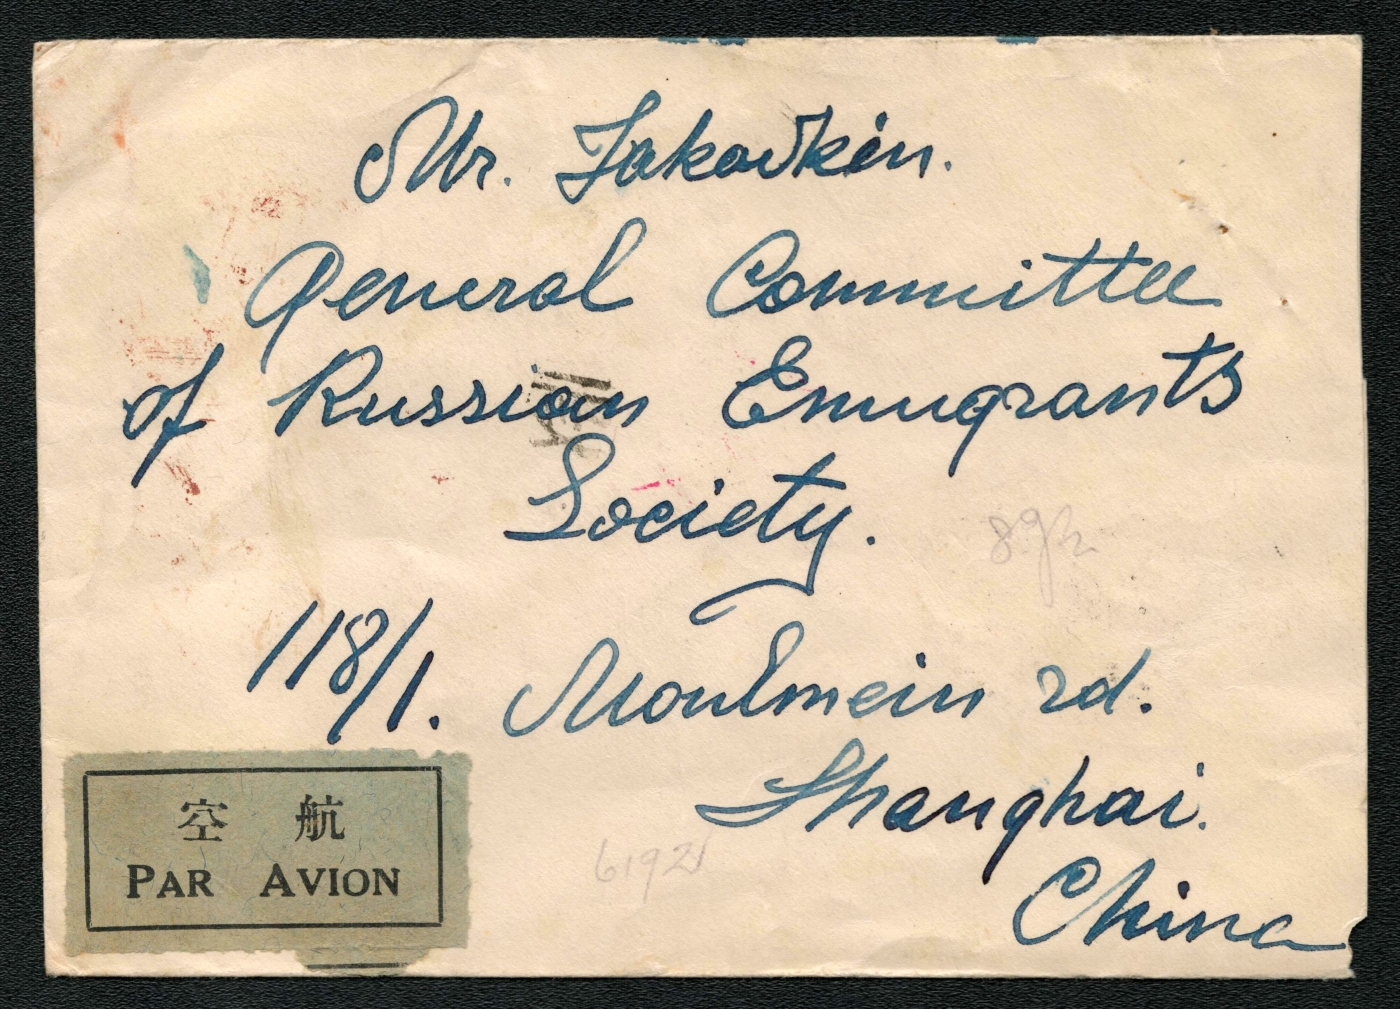 Mr. Jakovkin.
General Committee
of Russian Emigrants
Society.
118/1. Moulmein rd.
Shanghai.
China
空 航
PAR AVION
6192